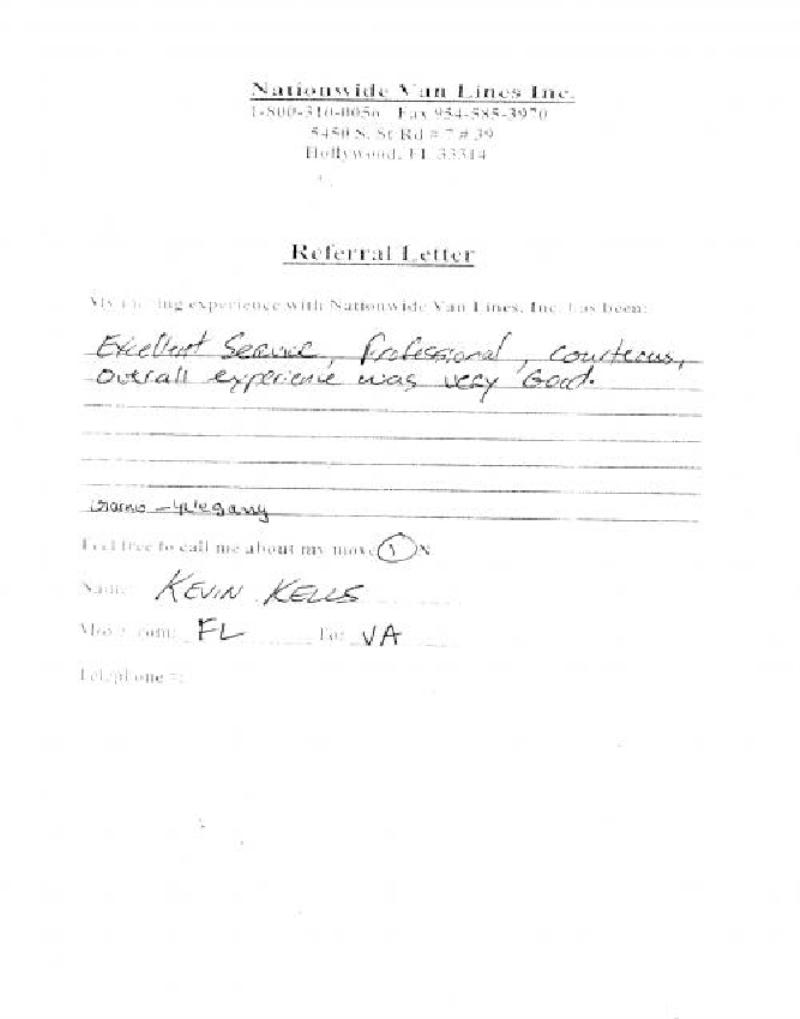 Nationwide Van Lines Inc.
1-800-310-0056 Fax 954-585-3970
5450 S. St Rd # 7 # 39
Hollywood, FL 33314
Referral Letter
My moving experience with Nationwide Van Lines, Inc. has been:
Excellent Service, Professional, courteous,
Overall experience was very Good.
Feel free to call me about my move Y N
Name: KEVIN KELLS
Move from: FL To: VA
Telephone #: